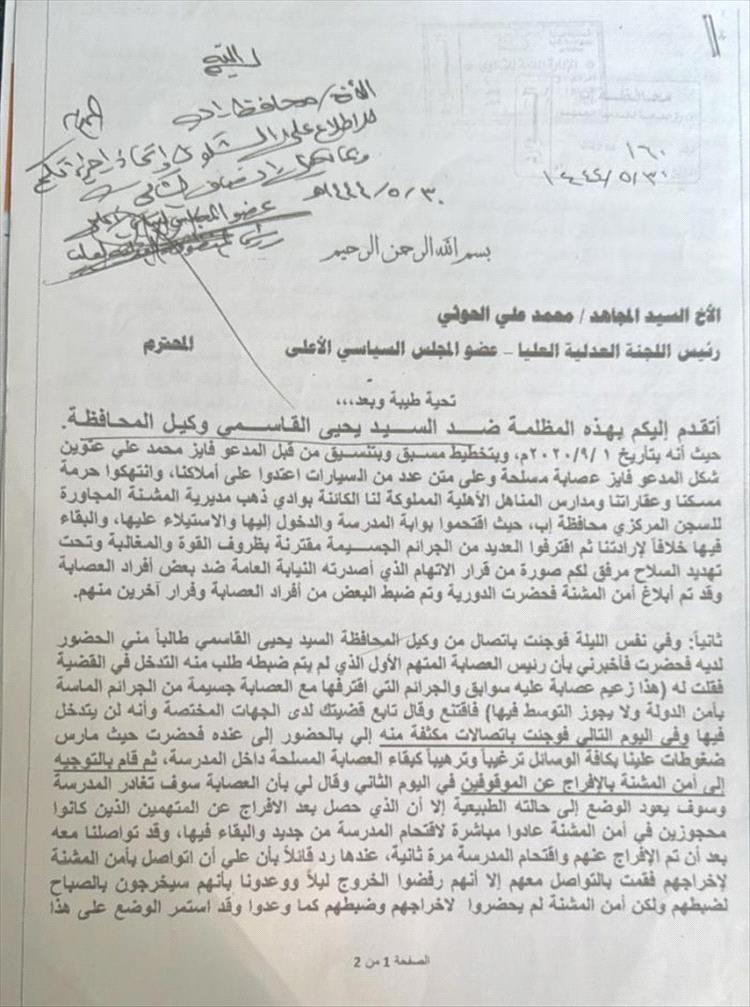 الأخ/ محافظ إب
للاطلاع على الشكوى واتخاذ إجراءاتكم
٣٠/٥/١٤٤٤هـ
١٦٠
١٤٤٤/٥/٣٠
بسم الله الرحمن الرحيم
الأخ السيد المجاهد/ محمد علي الحوثي
رئيس اللجنة العدلية العليا – عضو المجلس السياسي الأعلى المحترم
تحية طيبة وبعد،،،
أتقدم إليكم بهذه المظلمة ضد السيد يحيى القاسمي وكيل المحافظة.
حيث أنه بتاريخ ٢٠٢٠/٩/١م، وبتخطيط مسبق وبتنسيق من قبل المدعو فايز محمد علي عتوين
شكل المدعو فايز عصابة مسلحة وعلى متن عدد من السيارات اعتدوا على أملاكنا، وانتهكوا حرمة
مسكننا وعقاراتنا ومدارس المناهل الأهلية المملوكة لنا الكائنة بوادي ذهب مديرية المشنة المجاورة
للسجن المركزي محافظة إب، حيث اقتحموا بوابة المدرسة والدخول إليها والاستيلاء عليها، والبقاء
فيها خلافاً لإرادتنا ثم اقترفوا العديد من الجرائم الجسيمة مقترنة بظروف القوة والمغالبة وتحت
تهديد السلاح مرفق لكم صورة من قرار الاتهام الذي أصدرته النيابة العامة ضد بعض أفراد العصابة
وقد تم أبلاغ أمن المشنة فحضرت الدورية وتم ضبط البعض من أفراد العصابة وفرار آخرين منهم.
ثانياً: وفي نفس الليلة فوجئت باتصال من وكيل المحافظة السيد يحيى القاسمي طالباً مني الحضور
لديه فحضرت فأخبرني بأن رئيس العصابة المتهم الأول الذي لم يتم ضبطه طلب منه التدخل في القضية
فقلت له (هذا زعيم عصابة عليه سوابق والجرائم التي اقترفها مع العصابة جسيمة من الجرائم الماسة
بأمن الدولة ولا يجوز التوسط فيها) فاقتنع وقال تابع قضيتك لدى الجهات المختصة وأنه لن يتدخل
فيها وفي اليوم التالي فوجئت باتصالات مكثفة منه إلي بالحضور إلى عنده فحضرت حيث مارس
ضغوطات علينا بكافة الوسائل ترغيباً وترهيباً كبقاء العصابة المسلحة داخل المدرسة، ثم قام بالتوجيه
إلى أمن المشنة بالإفراج عن الموقوفين في اليوم الثاني وقال لي بأن العصابة سوف تغادر المدرسة
وسوف يعود الوضع إلى حالته الطبيعية إلا أن الذي حصل بعد الافراج عن المتهمين الذين كانوا
محجوزين في أمن المشنة عادوا مباشرة لاقتحام المدرسة من جديد والبقاء فيها، وقد تواصلنا معه
بعد أن تم الإفراج عنهم واقتحام المدرسة مرة ثانية، عندها رد قائلاً بأن علي أن اتواصل بأمن المشنة
لإخراجهم فقمت بالتواصل معهم إلا أنهم رفضوا الخروج ليلاً ووعدونا بأنهم سيخرجون بالصباح
لضبطهم ولكن أمن المشنة لم يحضروا لاخراجهم وضبطهم كما وعدوا وقد استمر الوضع على هذا
الصفحة 1 من 2